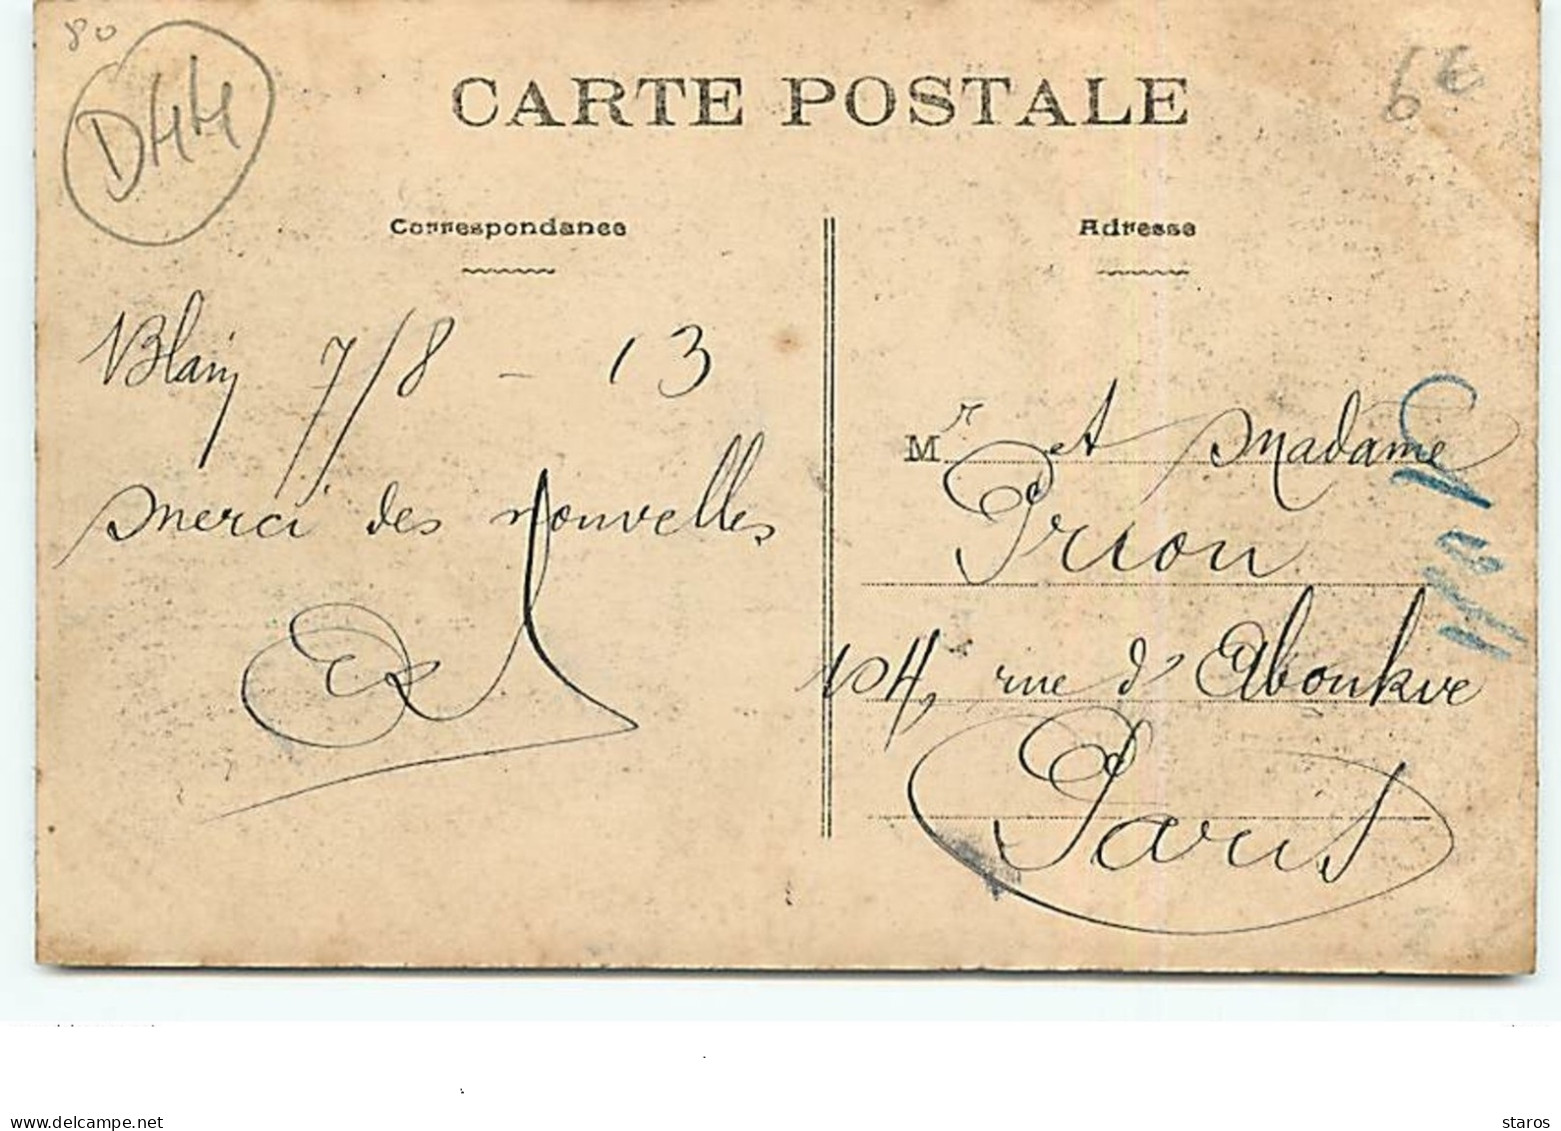 80
D44
6€
CARTE POSTALE
Correspondance
Adresse
Blain 7/8 - 13
merci des nouvelles
Mr et Madame
Prion
104, rue d'Aboukir
Paris
www.delcampe.net
staros